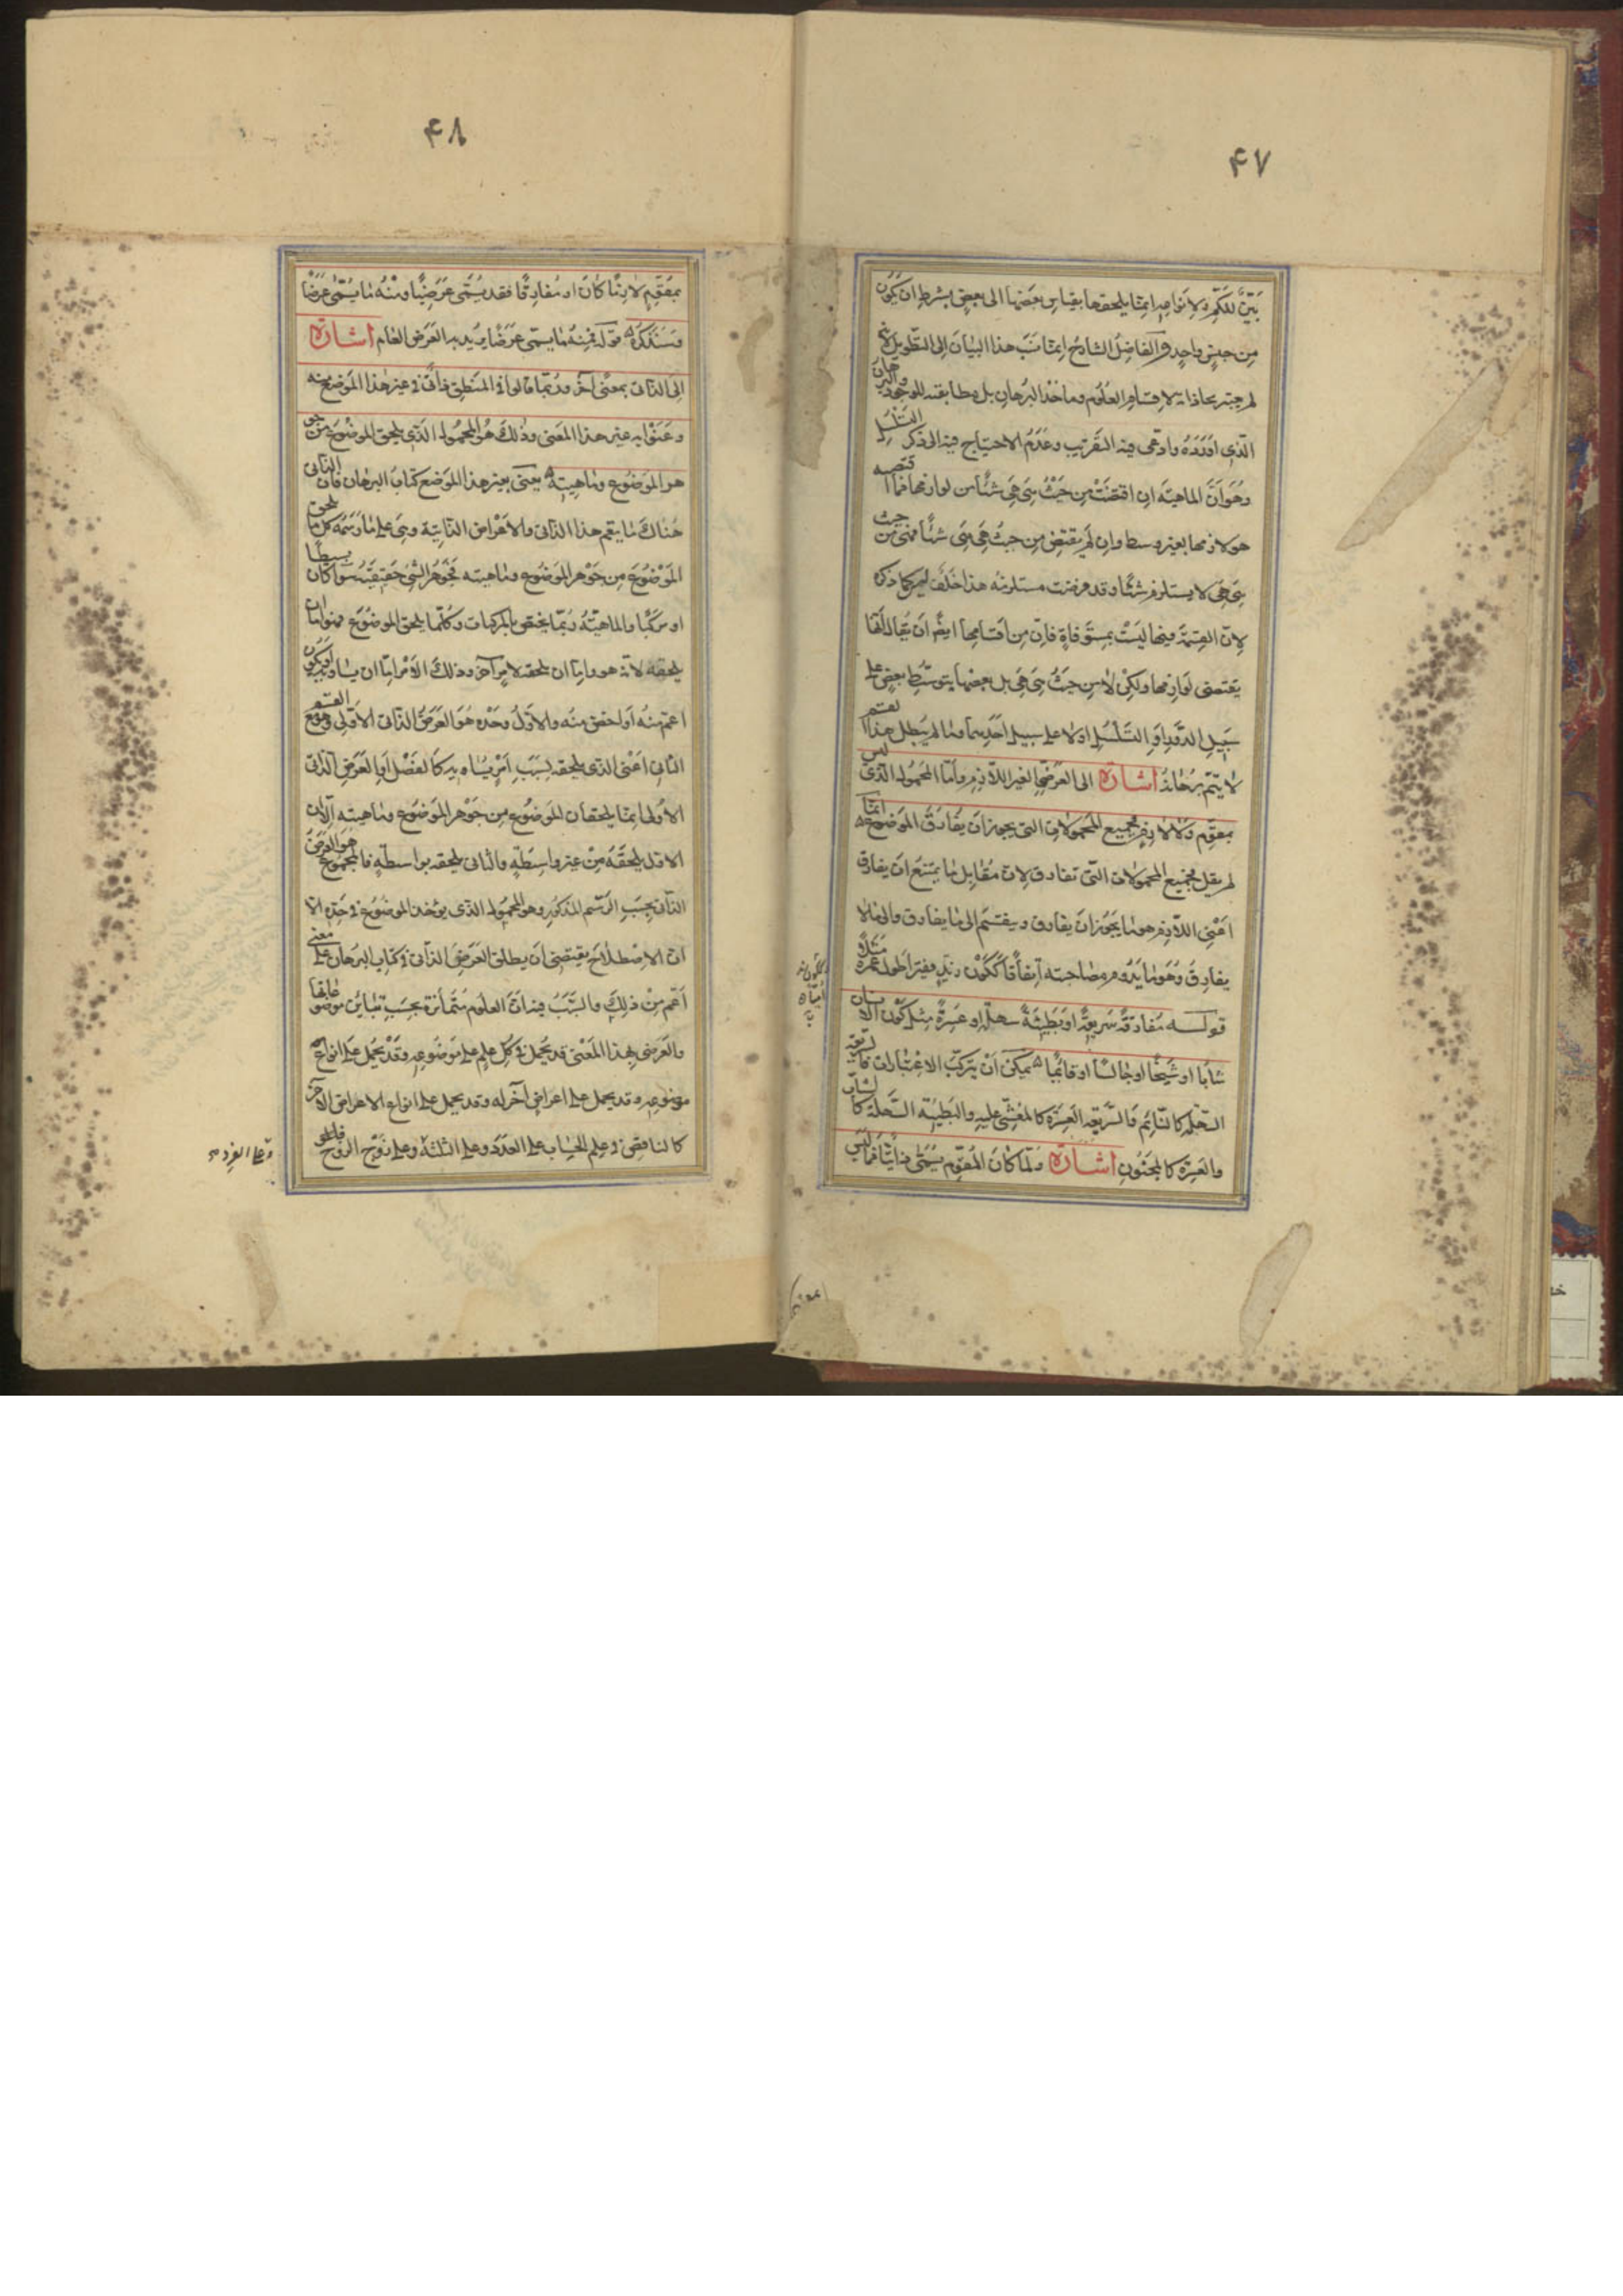 ۴۷
بَيِّنٌ للكمّ ولانواعه انما يلحقها بقياس بعضها الى بعض بشرط ان يكون
من جنس واحد والفاضل الشارح انما نسب هذا البيان الى التطويل لانه
لم يعتبر محاذاته لاقسام العلوم وماخذ البرهان بل مطابقته للوجود والبرهان
الذي اورده وادعى فيه التقريب وعدم الاحتياج فيه الى ذكر التسلسل
وهو ان الماهية ان اقتضت من حيث هي هي شيئا من لوازمها فما اقتضته
هو لازمها بغير وسط وان لم يقتض من حيث هي هي شيئا فمن حيث
هي هي لا يستلزم شيئا وقد فرضت مستلزمة هذا خلف ليس كما ذكر
لان القسمة فيها ليست بمستوفاة فان من اقسامها ايضا ان يقال انها
يقتضى لوازمها ولكن لا من حيث هي هي بل بعضها بتوسط بعض على
سبيل الدور او التسلسل اولا على سبيل احديهما وما لم يبطل هذا القسم
لا يتم برهانه اشارة الى العرضى الغير اللازم واما المحمول الذي ليس
بمقوم ولا لازم فجميع المحمولات التي يجوز ان يفارق الموضوع انما
لم يقل فجميع المحمولات التي تفارق لان مقابل ما يمتنع ان يفارق
اعنى اللازم هو ما يجوز ان يفارق وينقسم الى ما يفارق والى ما لا
يفارق وهو ما يدوم مصاحبته اتفاقا ككون زيد فقيرا طول عمره مثلا
قوله مفارقة سريعة او بطيئة سهلة او عسرة مثل كون الانسان
شابا او شيخا او جالسا او قائما يمكن ان يتركب الاعتباران فالسريعة
السهلة كالنائم والسريعة العسرة كالمغشي عليه والبطيئة السهلة كالشاب
والعسرة كالمجنون اشارة ولما كان المقوم يسمى ذاتيا فما ليس
۴۸
بمقوم لازما كان او مفارقا فقد يسمى عرضيا ومنه ما يسمى عرضا
وسنذكره قوله فمنه ما يسمى عرضا يريد به العرض العام اشارة
الى الذاتى بمعنى آخر وربما قالوا فى المنطق ذاتى فى غير هذا الموضع منه
وعنوا به غير هذا المعنى وذلك هو المحمول الذي يلحق الموضوع من جو
هر الموضوع وماهيته يعنى بغير هذا الموضع كتاب البرهان فان الذاتى
هناك ما يعم هذا الذاتى والاعراض الذاتية وهى على ما رسمه كل ما يلحق
الموضوع من جوهر الموضوع وماهيته فجوهر الشئ حقيقته سوا كان بسيطا
او مركبا والماهية ربما يختص بالمركبات وكلما يلحق الموضوع فهو اما ان
يلحقه لانه هو واما ان يلحقه لامر آخر وذلك الامر اما ان يساويه او يكون
اعم منه او اخص منه والاول وحده هو العرض الذاتى الاولى وهو مع القسم
الثانى اعنى الذي يلحقه بسبب امر يساويه كالفصل او العرض الذاتى
الاولى انما يلحقان للموضوع من جوهر الموضوع وماهيته الا ان
الاول يلحقه من غير واسطة والثانى يلحقه بواسطة فالمجموع هو العرض
الذاتى بحسب الرسم المذكور وهو المحمول الذي يوخذ الموضوع فى حده الا
ان الاصطلاح يقتضى ان يطلق العرض الذاتى فى كتاب البرهان على معنى
اعم من ذلك والسبب فيه ان العلوم متمايزة بحسب تباين موضوعاتها
والعرضى بهذا المعنى قد يحمل فى كل علم على موضوعه وقد يحمل على انواع
موضوعه وقد يحمل على اعراض آخر له وقد يحمل على انواع الاعراض الآخر
كالناقص فى علم الحساب على العدد وعلى الثلثة وعلى زوج الزوج
وعلى الفرد